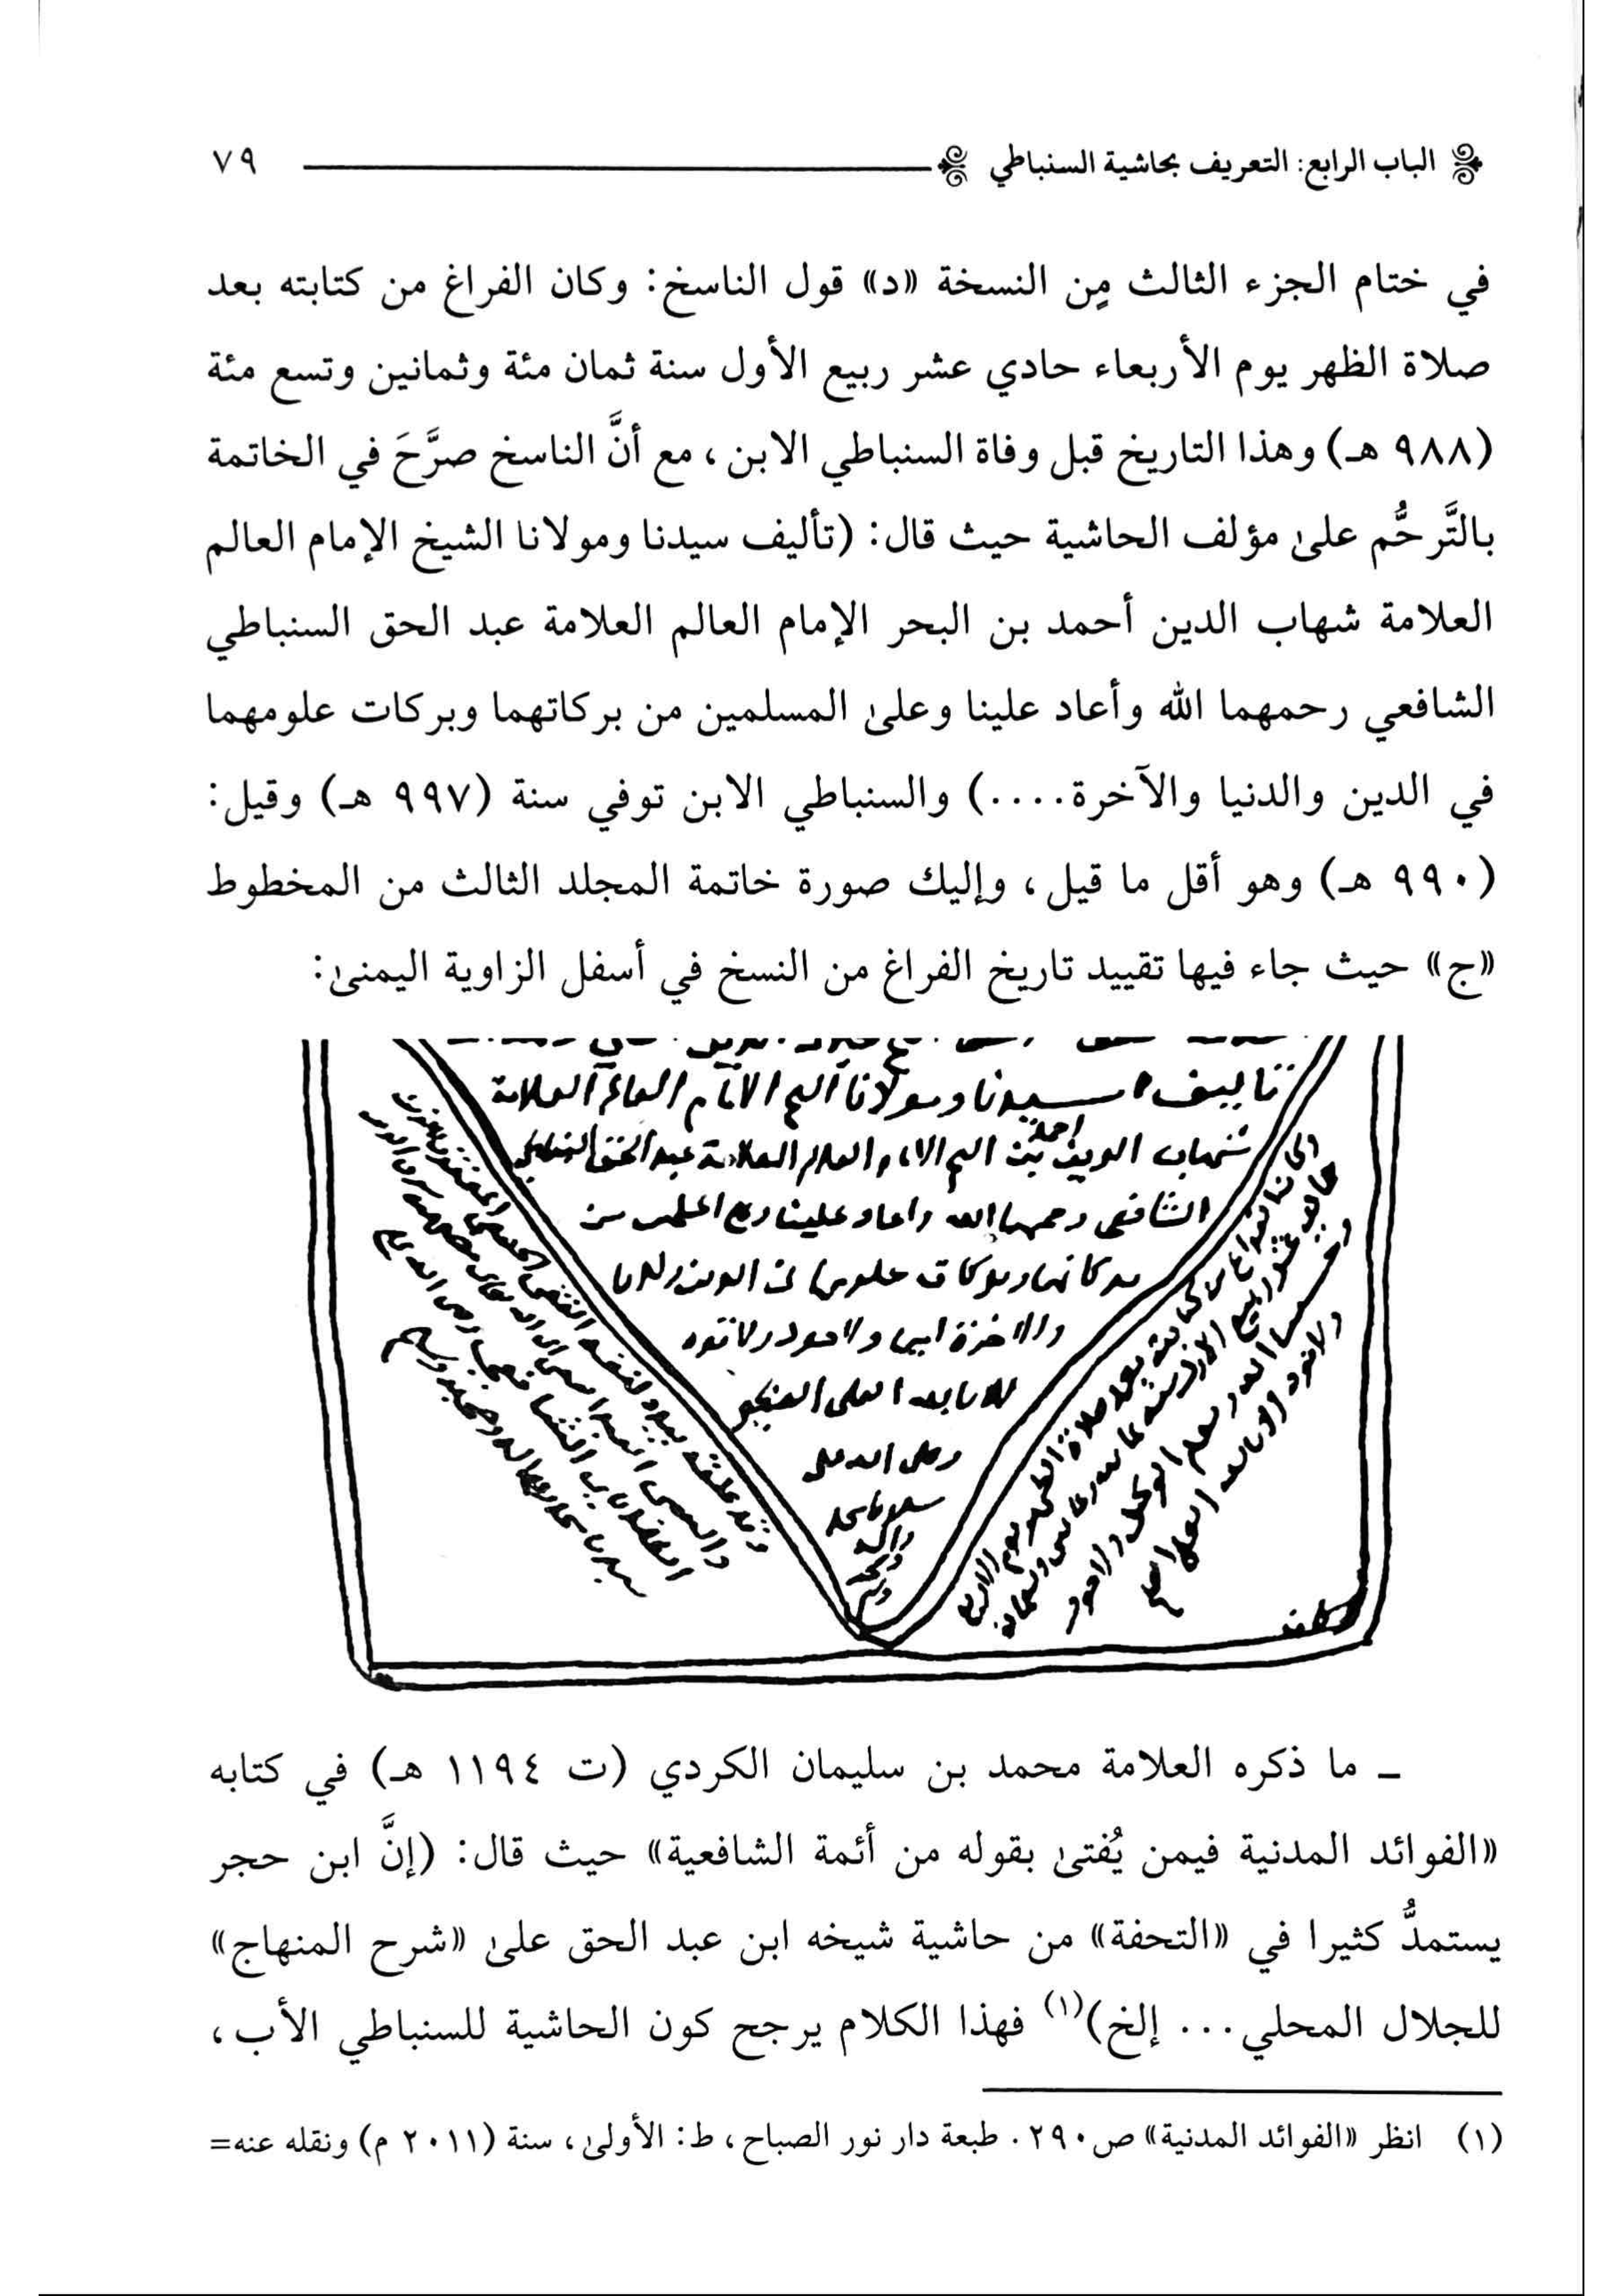 الباب الرابع: التعريف بحاشية السنباطي ٧٩
في ختام الجزء الثالث مِن النسخة «د» قول الناسخ: وكان الفراغ من كتابته بعد
صلاة الظهر يوم الأربعاء حادي عشر ربيع الأول سنة ثمان مئة وثمانين وتسع مئة
(٩٨٨ هـ) وهذا التاريخ قبل وفاة السنباطي الابن، مع أنَّ الناسخ صرَّحَ في الخاتمة
بالتَّرحُّم علىٰ مؤلف الحاشية حيث قال: (تأليف سيدنا ومولانا الشيخ الإمام العالم
العلامة شهاب الدين أحمد بن البحر الإمام العالم العلامة عبد الحق السنباطي
الشافعي رحمهما الله وأعاد علينا وعلىٰ المسلمين من بركاتهما وبركات علومهما
في الدين والدنيا والآخرة....) والسنباطي الابن توفي سنة (٩٩٧ هـ) وقيل:
(٩٩٠ هـ) وهو أقل ما قيل، وإليك صورة خاتمة المجلد الثالث من المخطوط
«ج» حيث جاء فيها تقييد تاريخ الفراغ من النسخ في أسفل الزاوية اليمنىٰ:
تاليف سيدنا ومولانا الامام العالم العلامة
شهاب الدين احمد بن العالم العلامة عبد الحق
الشافعي رحمهما الله واعاد علينا من
بركاتهما وبركات
والاخرة
العلى
ـ ما ذكره العلامة محمد بن سليمان الكردي (ت ١١٩٤ هـ) في كتابه
«الفوائد المدنية فيمن يُفتىٰ بقوله من أئمة الشافعية» حيث قال: (إنَّ ابن حجر
يستمدُّ كثيرا في «التحفة» من حاشية شيخه ابن عبد الحق علىٰ «شرح المنهاج»
للجلال المحلي... إلخ)(١) فهذا الكلام يرجح كون الحاشية للسنباطي الأب،
(١) انظر «الفوائد المدنية» ص٢٩٠. طبعة دار نور الصباح، ط: الأولىٰ، سنة (٢٠١١ م) ونقله عنه=